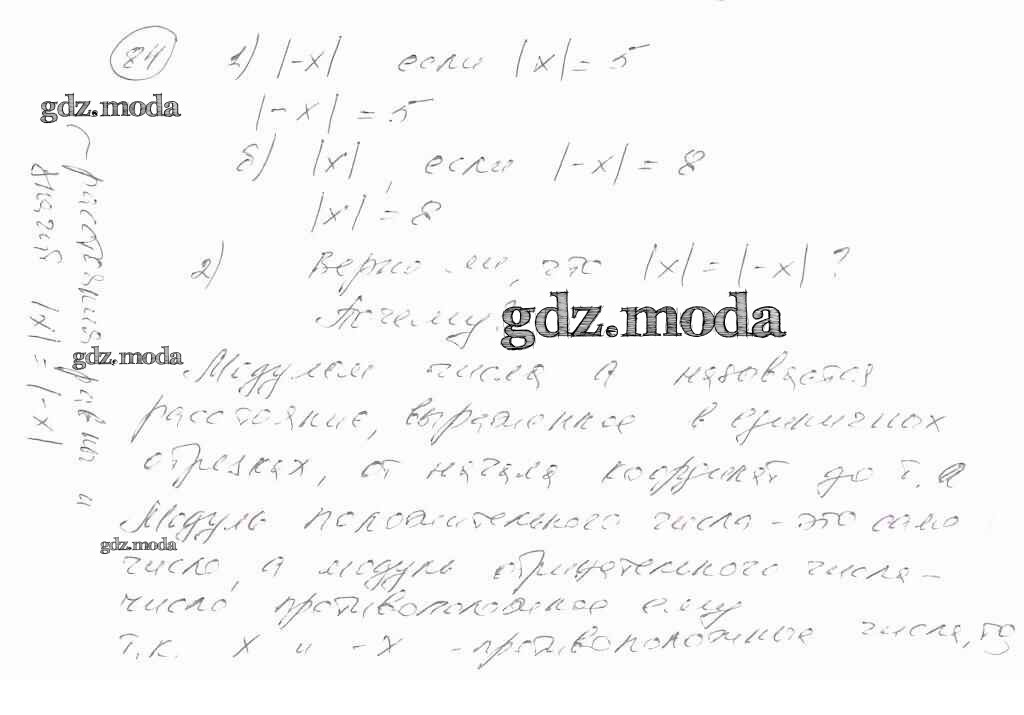 84 1) |-x| если |x| = 5
gdz.moda
|-x| = 5
б) |x|, если |-x| = 8
|x| = 8
2) Верно ли, что |x| = |-x| ?
Почему?
gdz.moda
gdz.moda
Модулем числа а называется
расстояние, выраженное в единичных
отрезках, от начала координат до т. а
Модуль положительного числа - это само
gdz.moda
число, а модуль отрицательного числа -
число противоположное ему
т.к. x и -x - противоположные числа, то
расстояния равны и
значит |x| = |-x|